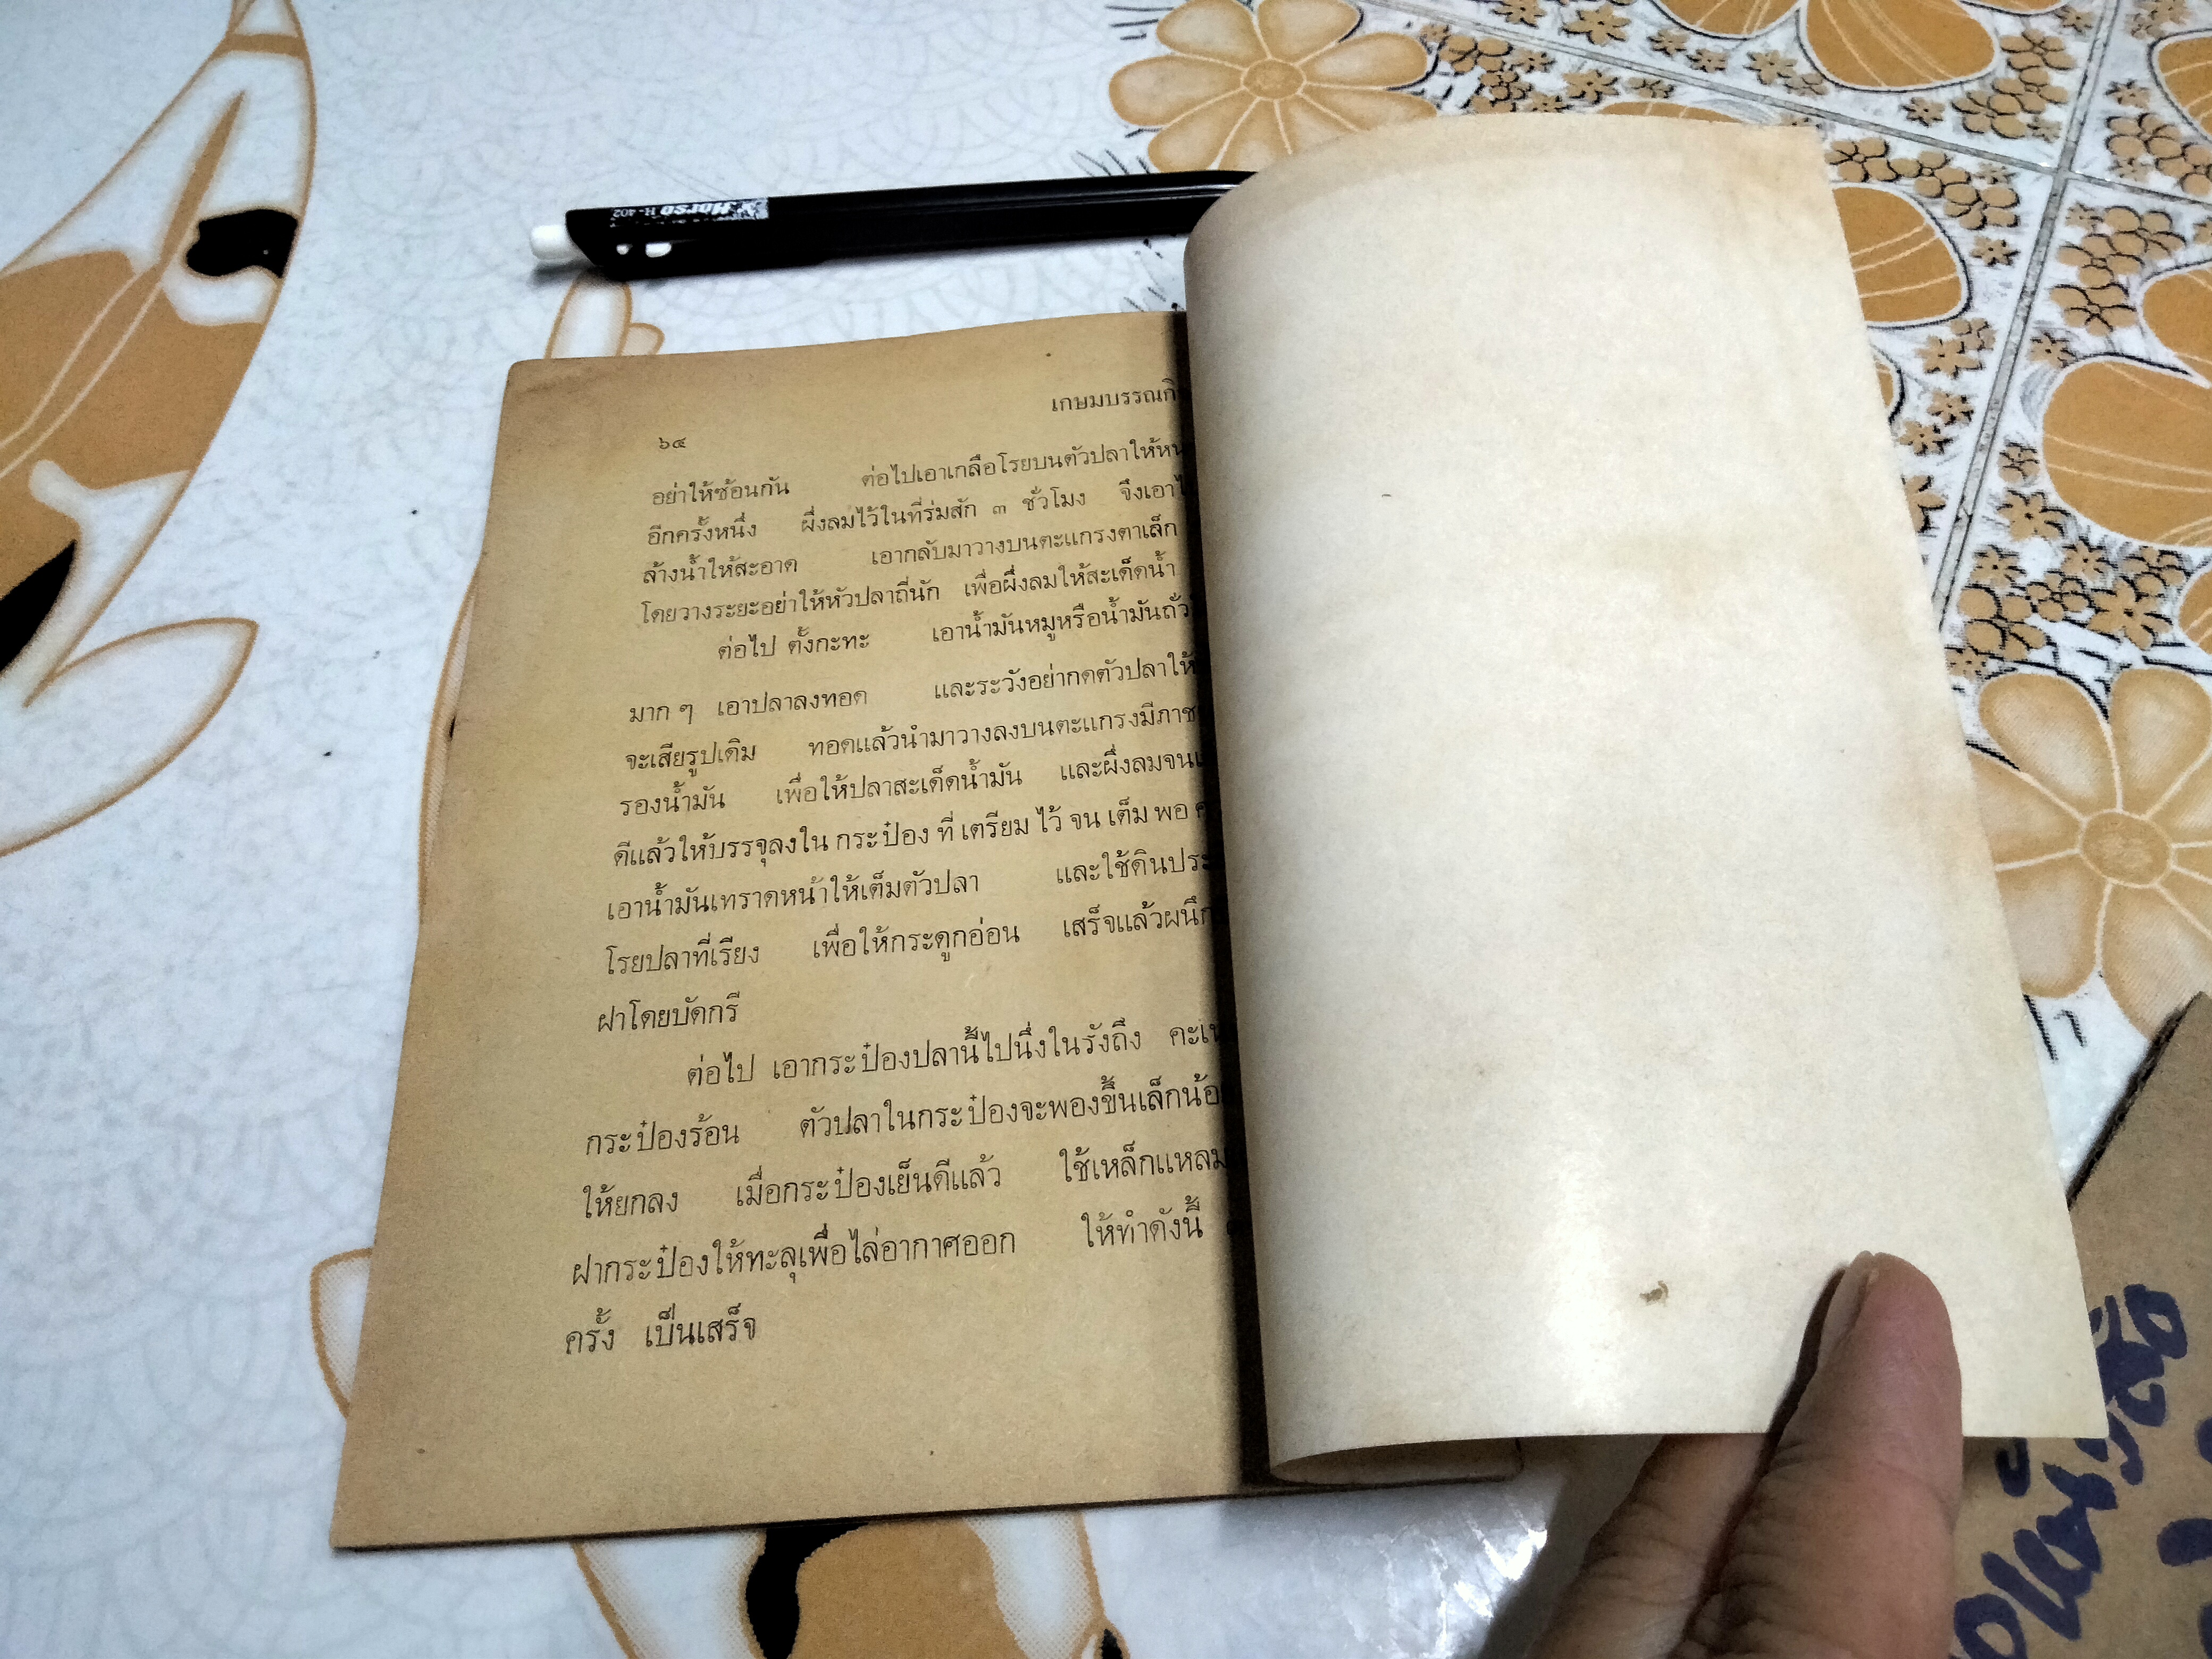 Horse H-402
เกษมบรรณกิ
๖๔
อย่าให้ซ้อนกัน ต่อไปเอาเกลือโรยบนตัวปลาให้
อีกครั้งหนึ่ง ผึ่งลมไว้ในที่ร่มสัก ๓ ชั่วโมง จึงเอา
ล้างน้ำให้สะอาด เอากลับมาวางบนตะแกรงตาเล็ก
โดยวางระยะอย่าให้หัวปลาถี่นัก เพื่อผึ่งลมให้สะเด็ดน้ำ
ต่อไป ตั้งกะทะ เอาน้ำมันหมูหรือน้ำมันถั่ว
มาก ๆ เอาปลาลงทอด และระวังอย่ากดตัวปลาให้
จะเสียรูปเดิม ทอดแล้วนำมาวางลงบนตะแกรงมีภาช
รองน้ำมัน เพื่อให้ปลาสะเด็ดน้ำมัน และผึ่งลมจน
ดีแล้วให้บรรจุลงใน กระป๋อง ที่ เตรียม ไว้ จน เต็ม พอ
เอาน้ำมันเทราดหน้าให้เต็มตัวปลา และใช้ดินประ
โรยปลาที่เรียง เพื่อให้กระดูกอ่อน เสร็จแล้วผนึก
ฝาโดยบัดกรี
ต่อไป เอากระป๋องปลานี้ไปนึ่งในรังถึง คะเน
กระป๋องร้อน ตัวปลาในกระป๋องจะพองขึ้นเล็กน้อ
ให้ยกลง เมื่อกระป๋องเย็นดีแล้ว ใช้เหล็กแหลม
ฝากระป๋องให้ทะลุเพื่อไล่อากาศออก ให้ทำดังนี้
ครั้ง เป็นเสร็จ